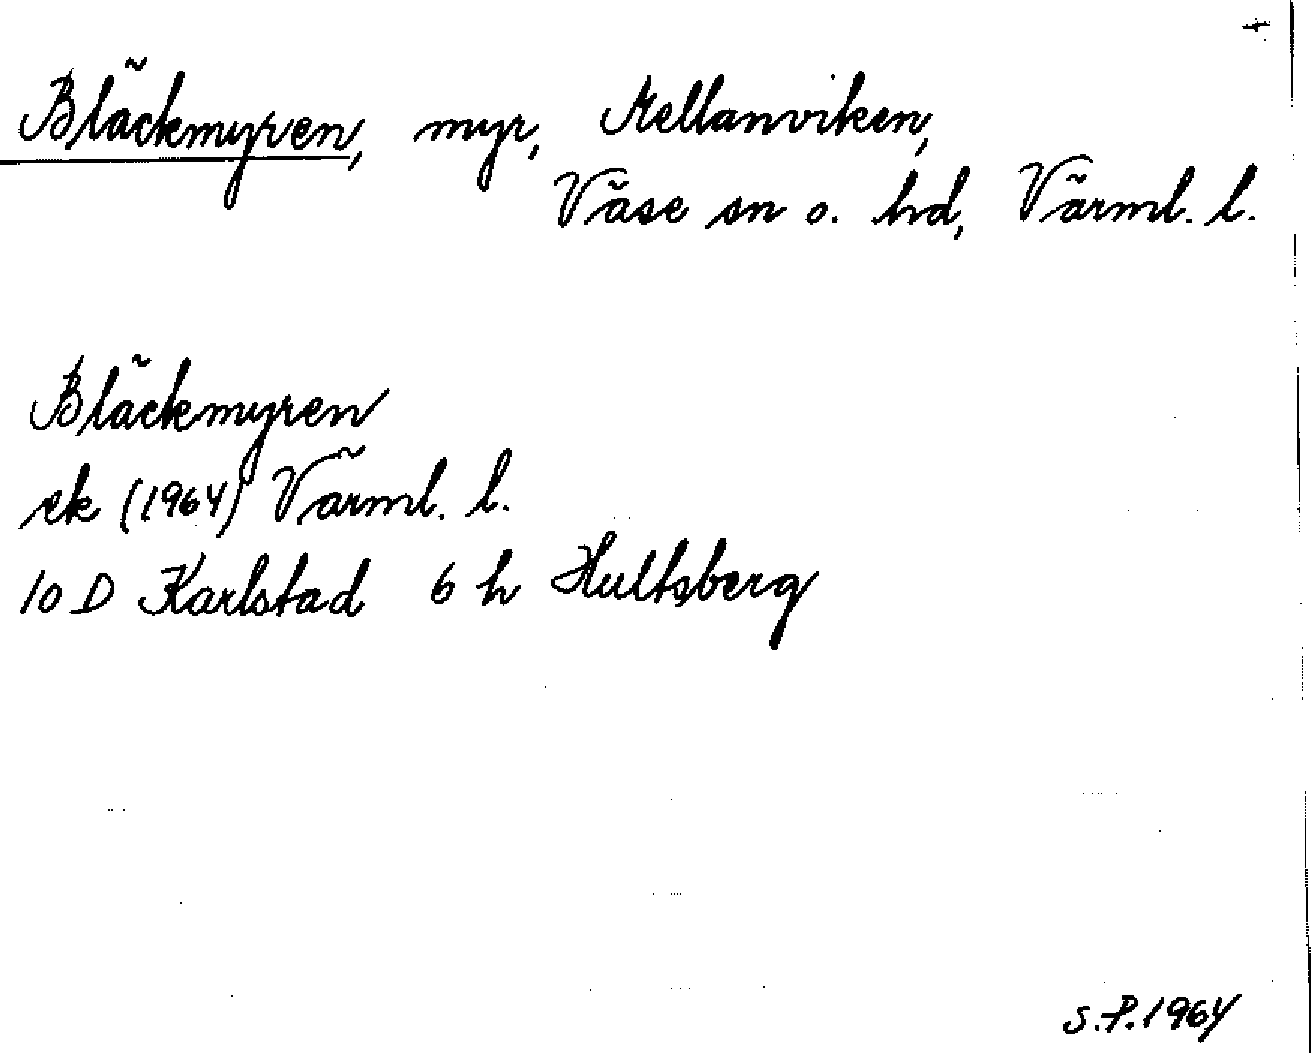 Bläckmyren, myr, Mellanviken,
Väse sn o. hd, Värml. l.
Bläckmyren
ek (1964) Värml. l.
10 D Karlstad 6 h Hultsberg
S.P. 1964